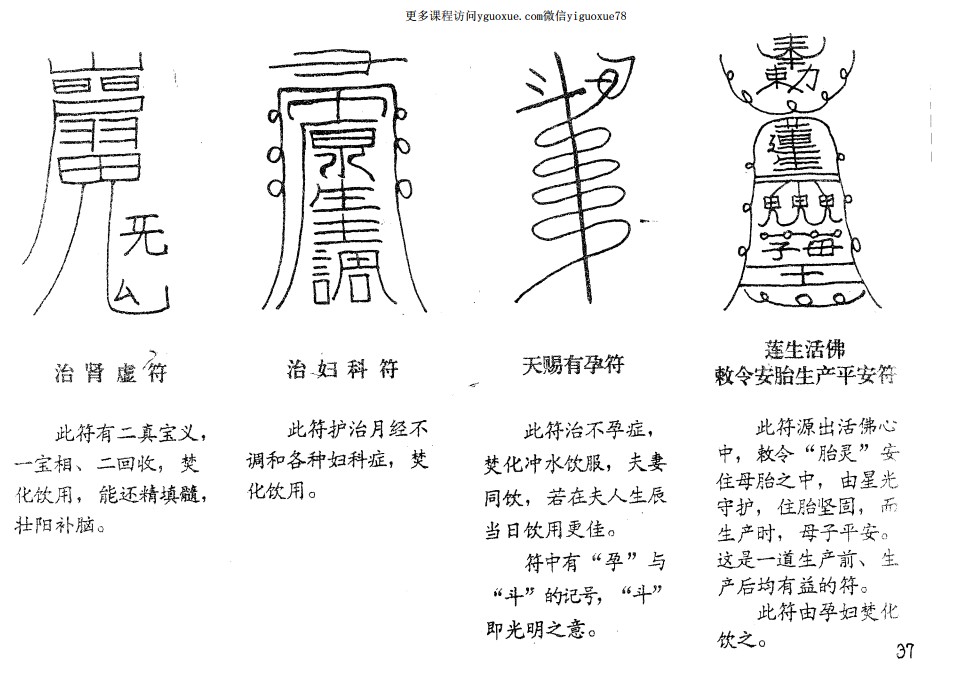 更多课程访问yguoxue.com微信yiguoxue78
治肾虚符
此符有二真宝义，
一宝相、二回收，焚
化饮用，能还精填髓，
壮阳补脑。
治妇科符
此符护治月经不
调和各种妇科症，焚
化饮用。
天赐有孕符
此符治不孕症，
焚化冲水饮服，夫妻
同饮，若在夫人生辰
当日饮用更佳。
符中有“孕”与
“斗”的记号，“斗”
即光明之意。
奉
敕
莲生
子母
莲生活佛
敕令安胎生产平安符
此符源出活佛心
中，敕令“胎灵”安
住母胎之中，由星光
守护，住胎坚固，而
生产时，母子平安。
这是一道生产前、生
产后均有益的符。
此符由孕妇焚化
饮之。
37